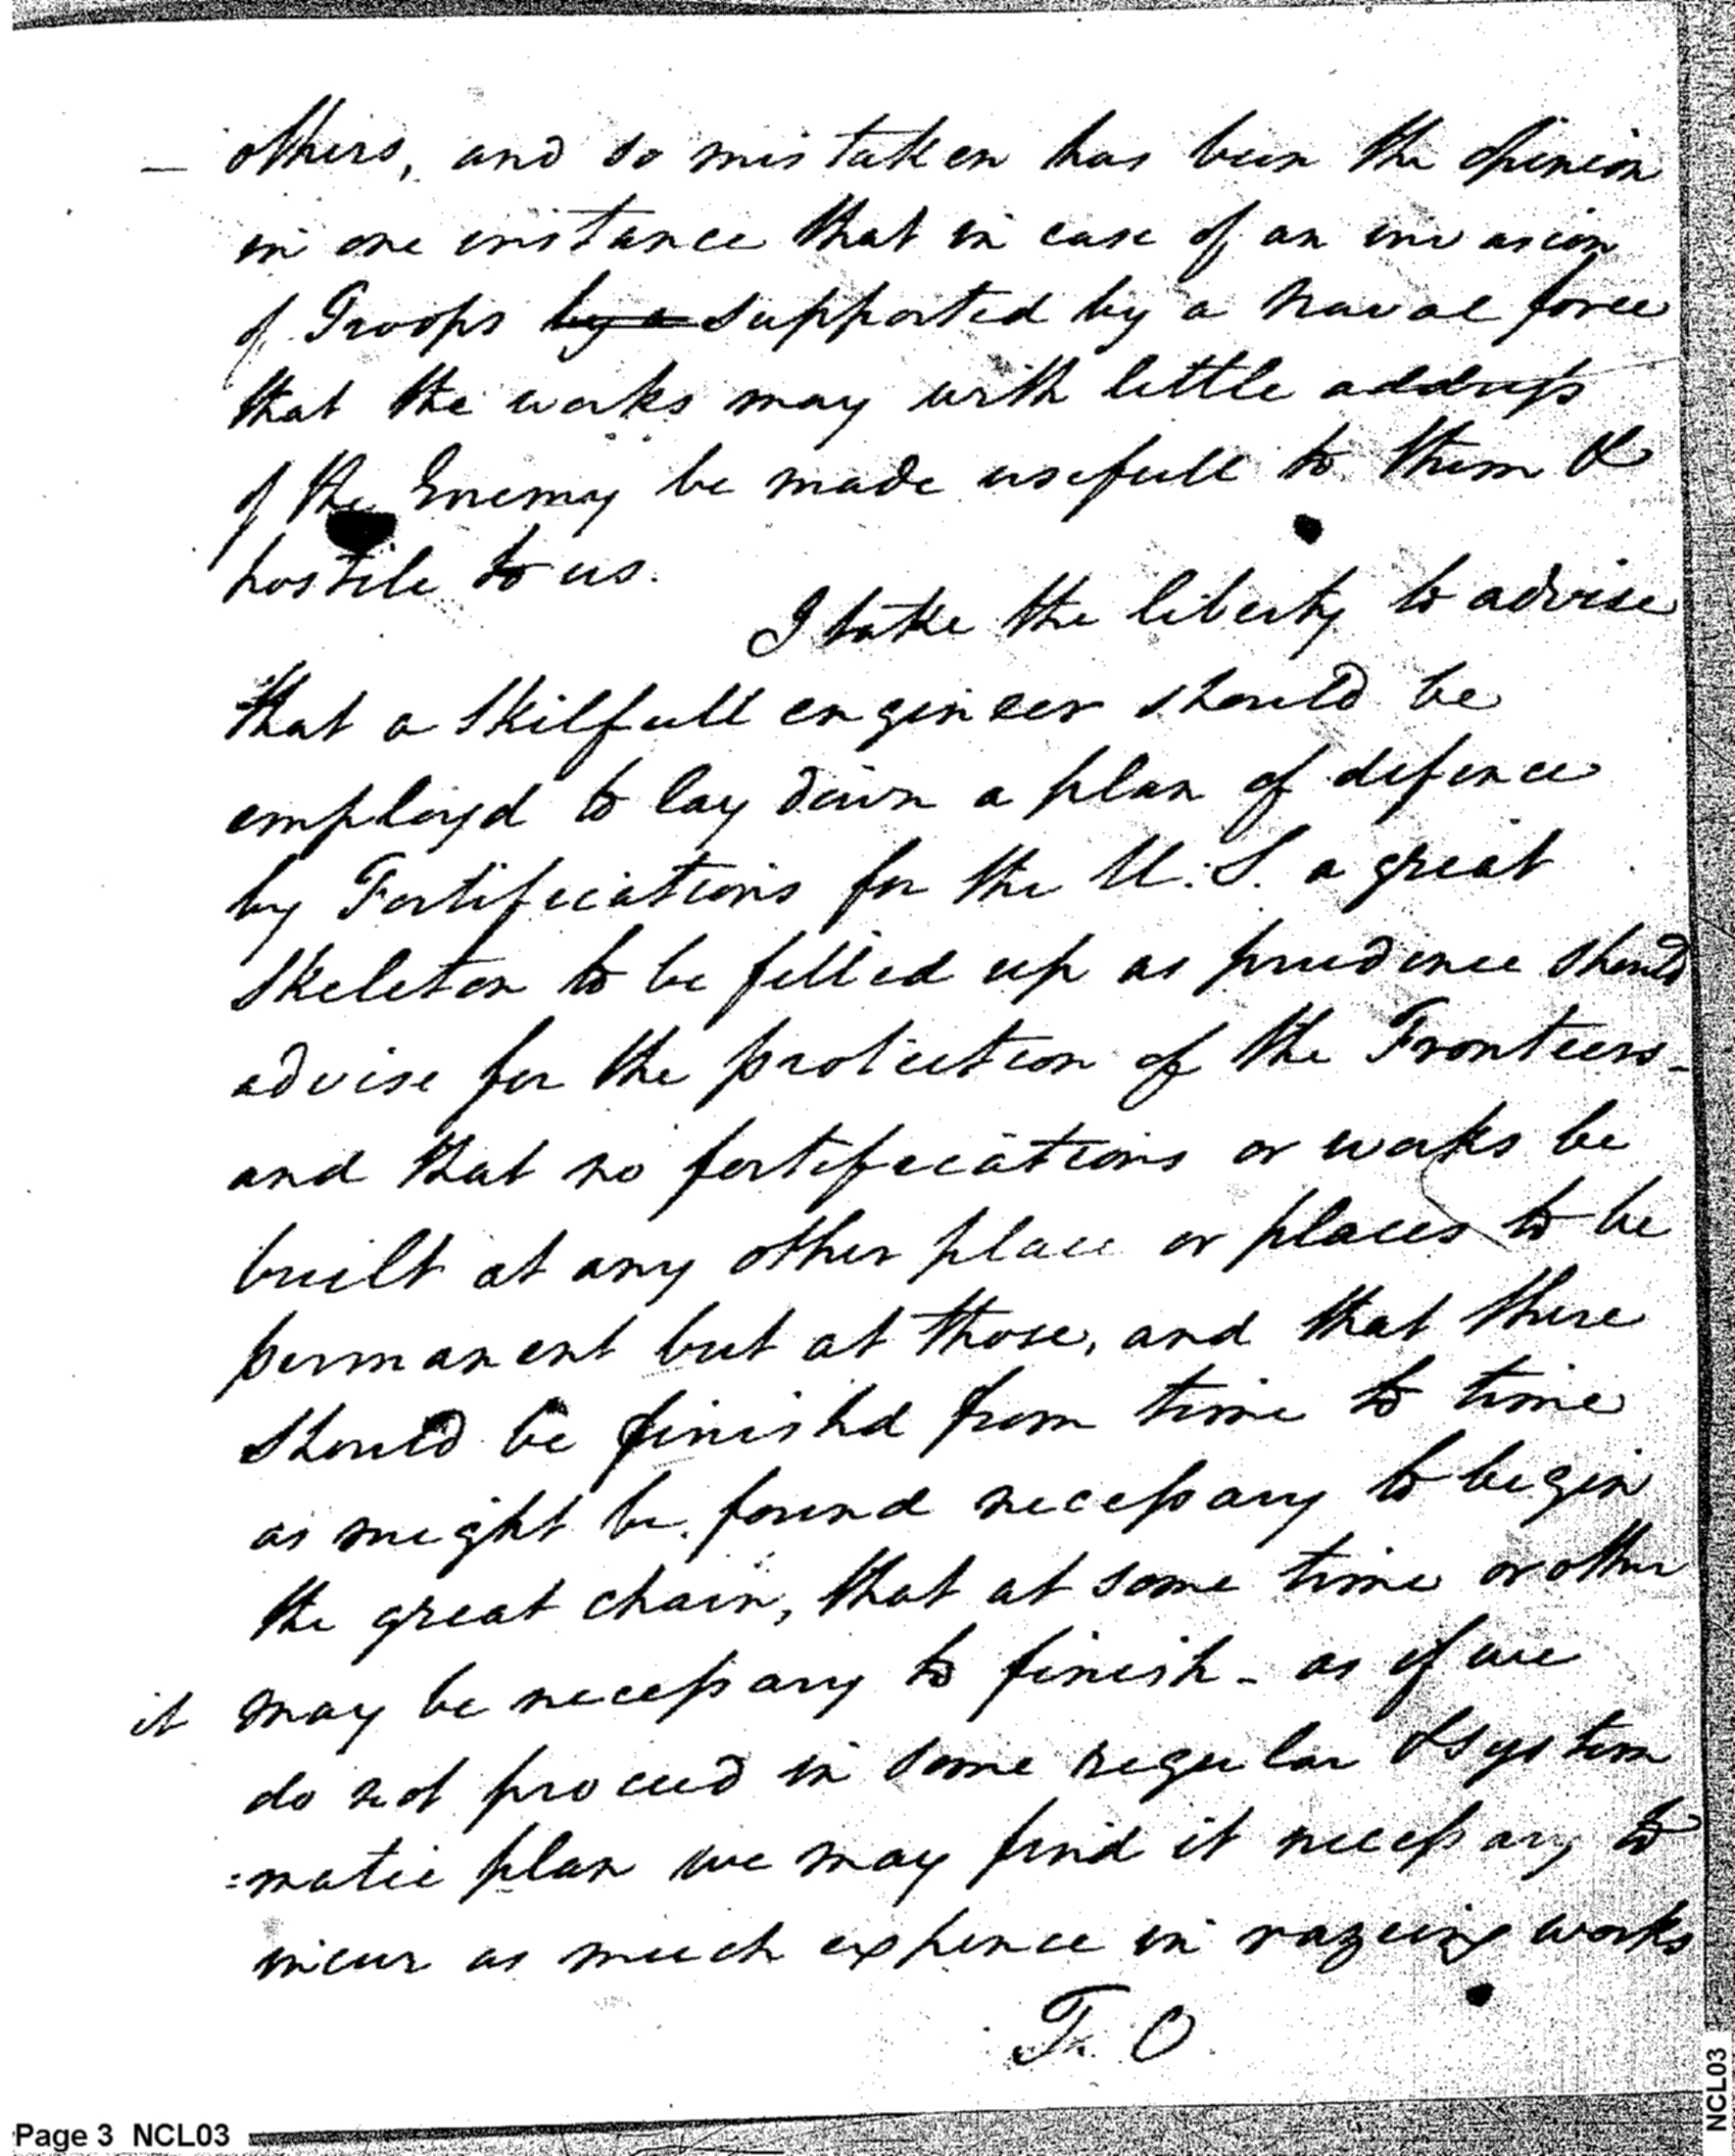 – others, and so mistaken has been the opinion
in one instance that in case of an invasion
of Troops by a supported by a Naval force
that the works may with little address
of the Enemy be made usefull to them &
hostile to us.
I take the liberty to advise
that a skilfull engineer should be
employd to lay down a plan of defence
by Fortifications for the U.S. a great
skeleton to be filled up as prudence should
advise for the protection of the Frontiers–
and that no fortifications or works be
built at any other place or places to be
permanent but at those, and that these
should be finishd from time to time
as might be found necessary to begin
the great chain, that at some time or other
it may be necessary to finish – as if we
do not proceed in some regular & system
=matic plan we may find it necessary to
incur as much expence in razeing works
T. O
Page 3 NCL03
NCL03